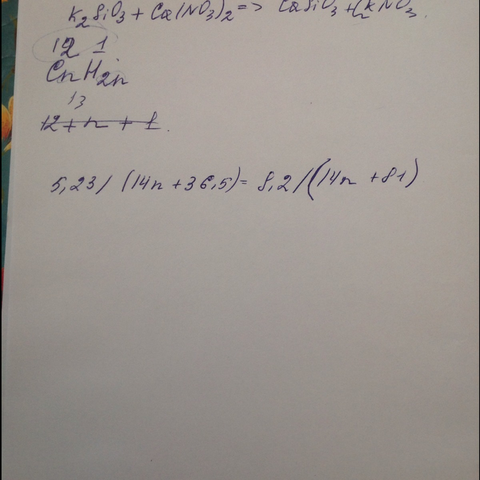 K₂SiO₃ + Ca(NO₃)₂ => CaSiO₃ + 2KNO₃.
12 1
CnH2n
13
12 + n + 1
5,23/(14n+36,5)=8,2/(14n+81)